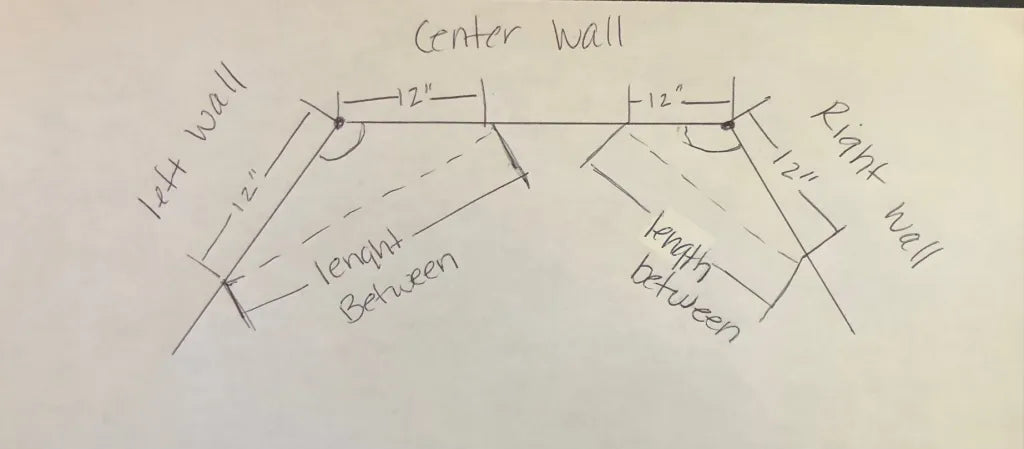 Center Wall
left wall
12"
12"
12"
Right wall
12"
lenght
Between
length
between